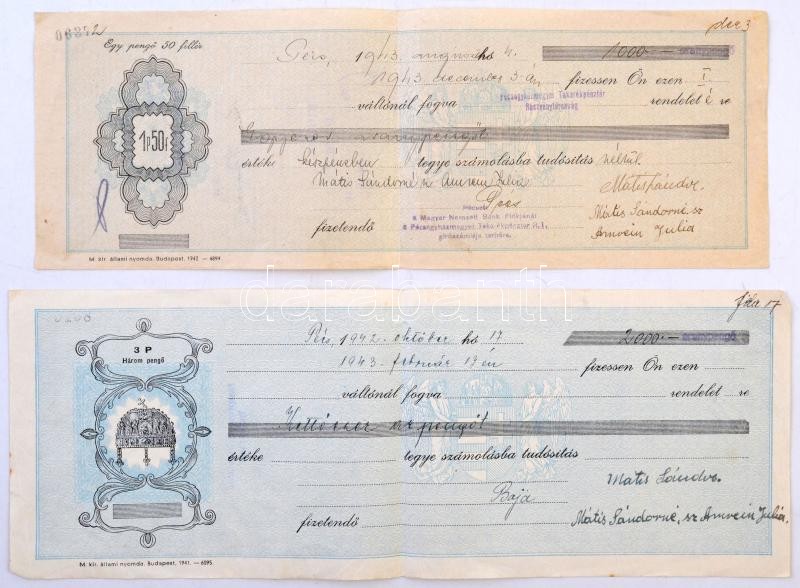 06872
dec 3
Egy pengő 50 fillér
Pécs, 1943. hó 4. 1000.— aranypengő
1943 december 3-án fizessen Ön ezen I.
váltónál fogva rendelete
Takarékpénztár
Részvénytársaság
1 P 50 f
aranypengőt
értéke készpénzben tegye számolásba tudósítás nélkül.
Mátis Sándorné sz Amrein Julia
Pécs
Mátis Sándor.
fizetendő
a Magyar Nemzeti Bank fiókjánál
a Pécsegyházmegyei Takarékpénztár R.T.
girószámlája terhére.
Mátis Sándorné, sz
Amrein Julia
M. kir. állami nyomda. Budapest, 1942. — 6094.
darabanth
Pécs, 1942. október hó 17 2000.— aranypengő
3 P
Három pengő
1943. február 17 én fizessen Ön ezen
váltónál fogva rendelet re
Kettőezer
értéke tegye számolásba tudósítás
Mátis Sándor.
Baja
fizetendő
Mátis Sándorné, sz Amrein Julia.
M. kir. állami nyomda. Budapest, 1941. — 6095.